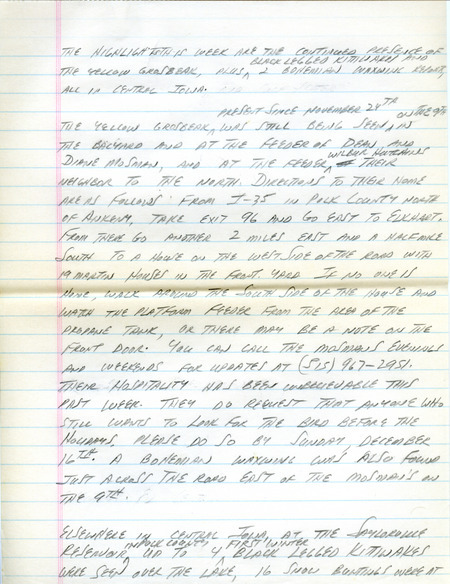 THE HIGHLIGHTS THIS WEEK ARE THE CONTINUED PRESENCE OF
BLACK LEGGED KITTIWAKE AND
THE YELLOW GROSBEAK, PLUS 2 BOHEMIAN WAXWING REPORTS,
ALL IN CENTRAL IOWA.
PRESENT SINCE NOVEMBER 29TH ON THE 9TH
THE YELLOW GROSBEAK, WAS STILL BEING SEEN, IN
THE BACKYARD AND AT THE FEEDER OF DEAN AND
WILBUR HUTCHINS
DIANE MOSMAN, AND AT THE FEEDER THEIR
NEIGHBOR TO THE NORTH. DIRECTIONS TO THEIR HOME
ARE AS FOLLOWS: FROM I-35 IN POLK COUNTY NORTH
OF ANKENY, TAKE EXIT 96 AND GO EAST TO ELKHART.
FROM THERE GO ANOTHER 2 MILES EAST AND A HALF MILE
SOUTH TO A HOUSE ON THE WEST SIDE OF THE ROAD WITH
19 MARTIN HOUSES IN THE FRONT YARD. IF NO ONE IS
HOME, WALK AROUND THE SOUTH SIDE OF THE HOUSE AND
WATCH THE PLATFORM FEEDER FROM THE AREA OF THE
PROPANE TANK, OR THERE MAY BE A NOTE ON THE
FRONT DOOR. YOU CAN CALL THE MOSMANS EVENINGS
AND WEEKENDS FOR UPDATES AT (515) 967-2951.
THEIR HOSPITALITY HAS BEEN UNBELIEVABLE THIS
PAST WEEK. THEY DO REQUEST THAT ANYONE WHO
STILL WANTS TO LOOK FOR THE BIRD BEFORE THE
HOLIDAYS, PLEASE DO SO BY SUNDAY, DECEMBER
16TH. A BOHEMIAN WAXWING WAS ALSO FOUND
JUST ACROSS THE ROAD EAST OF THE MOSMAN'S ON
THE 9TH.
ELSEWHERE IN CENTRAL IOWA, AT THE SAYLORVILLE
IN POLK COUNTY FIRST WINTER
RESERVOIR, UP TO 4, BLACK LEGGED KITTIWAKES
WERE SEEN OVER THE LAKE, 16 SNOW BUNTINGS WERE AT